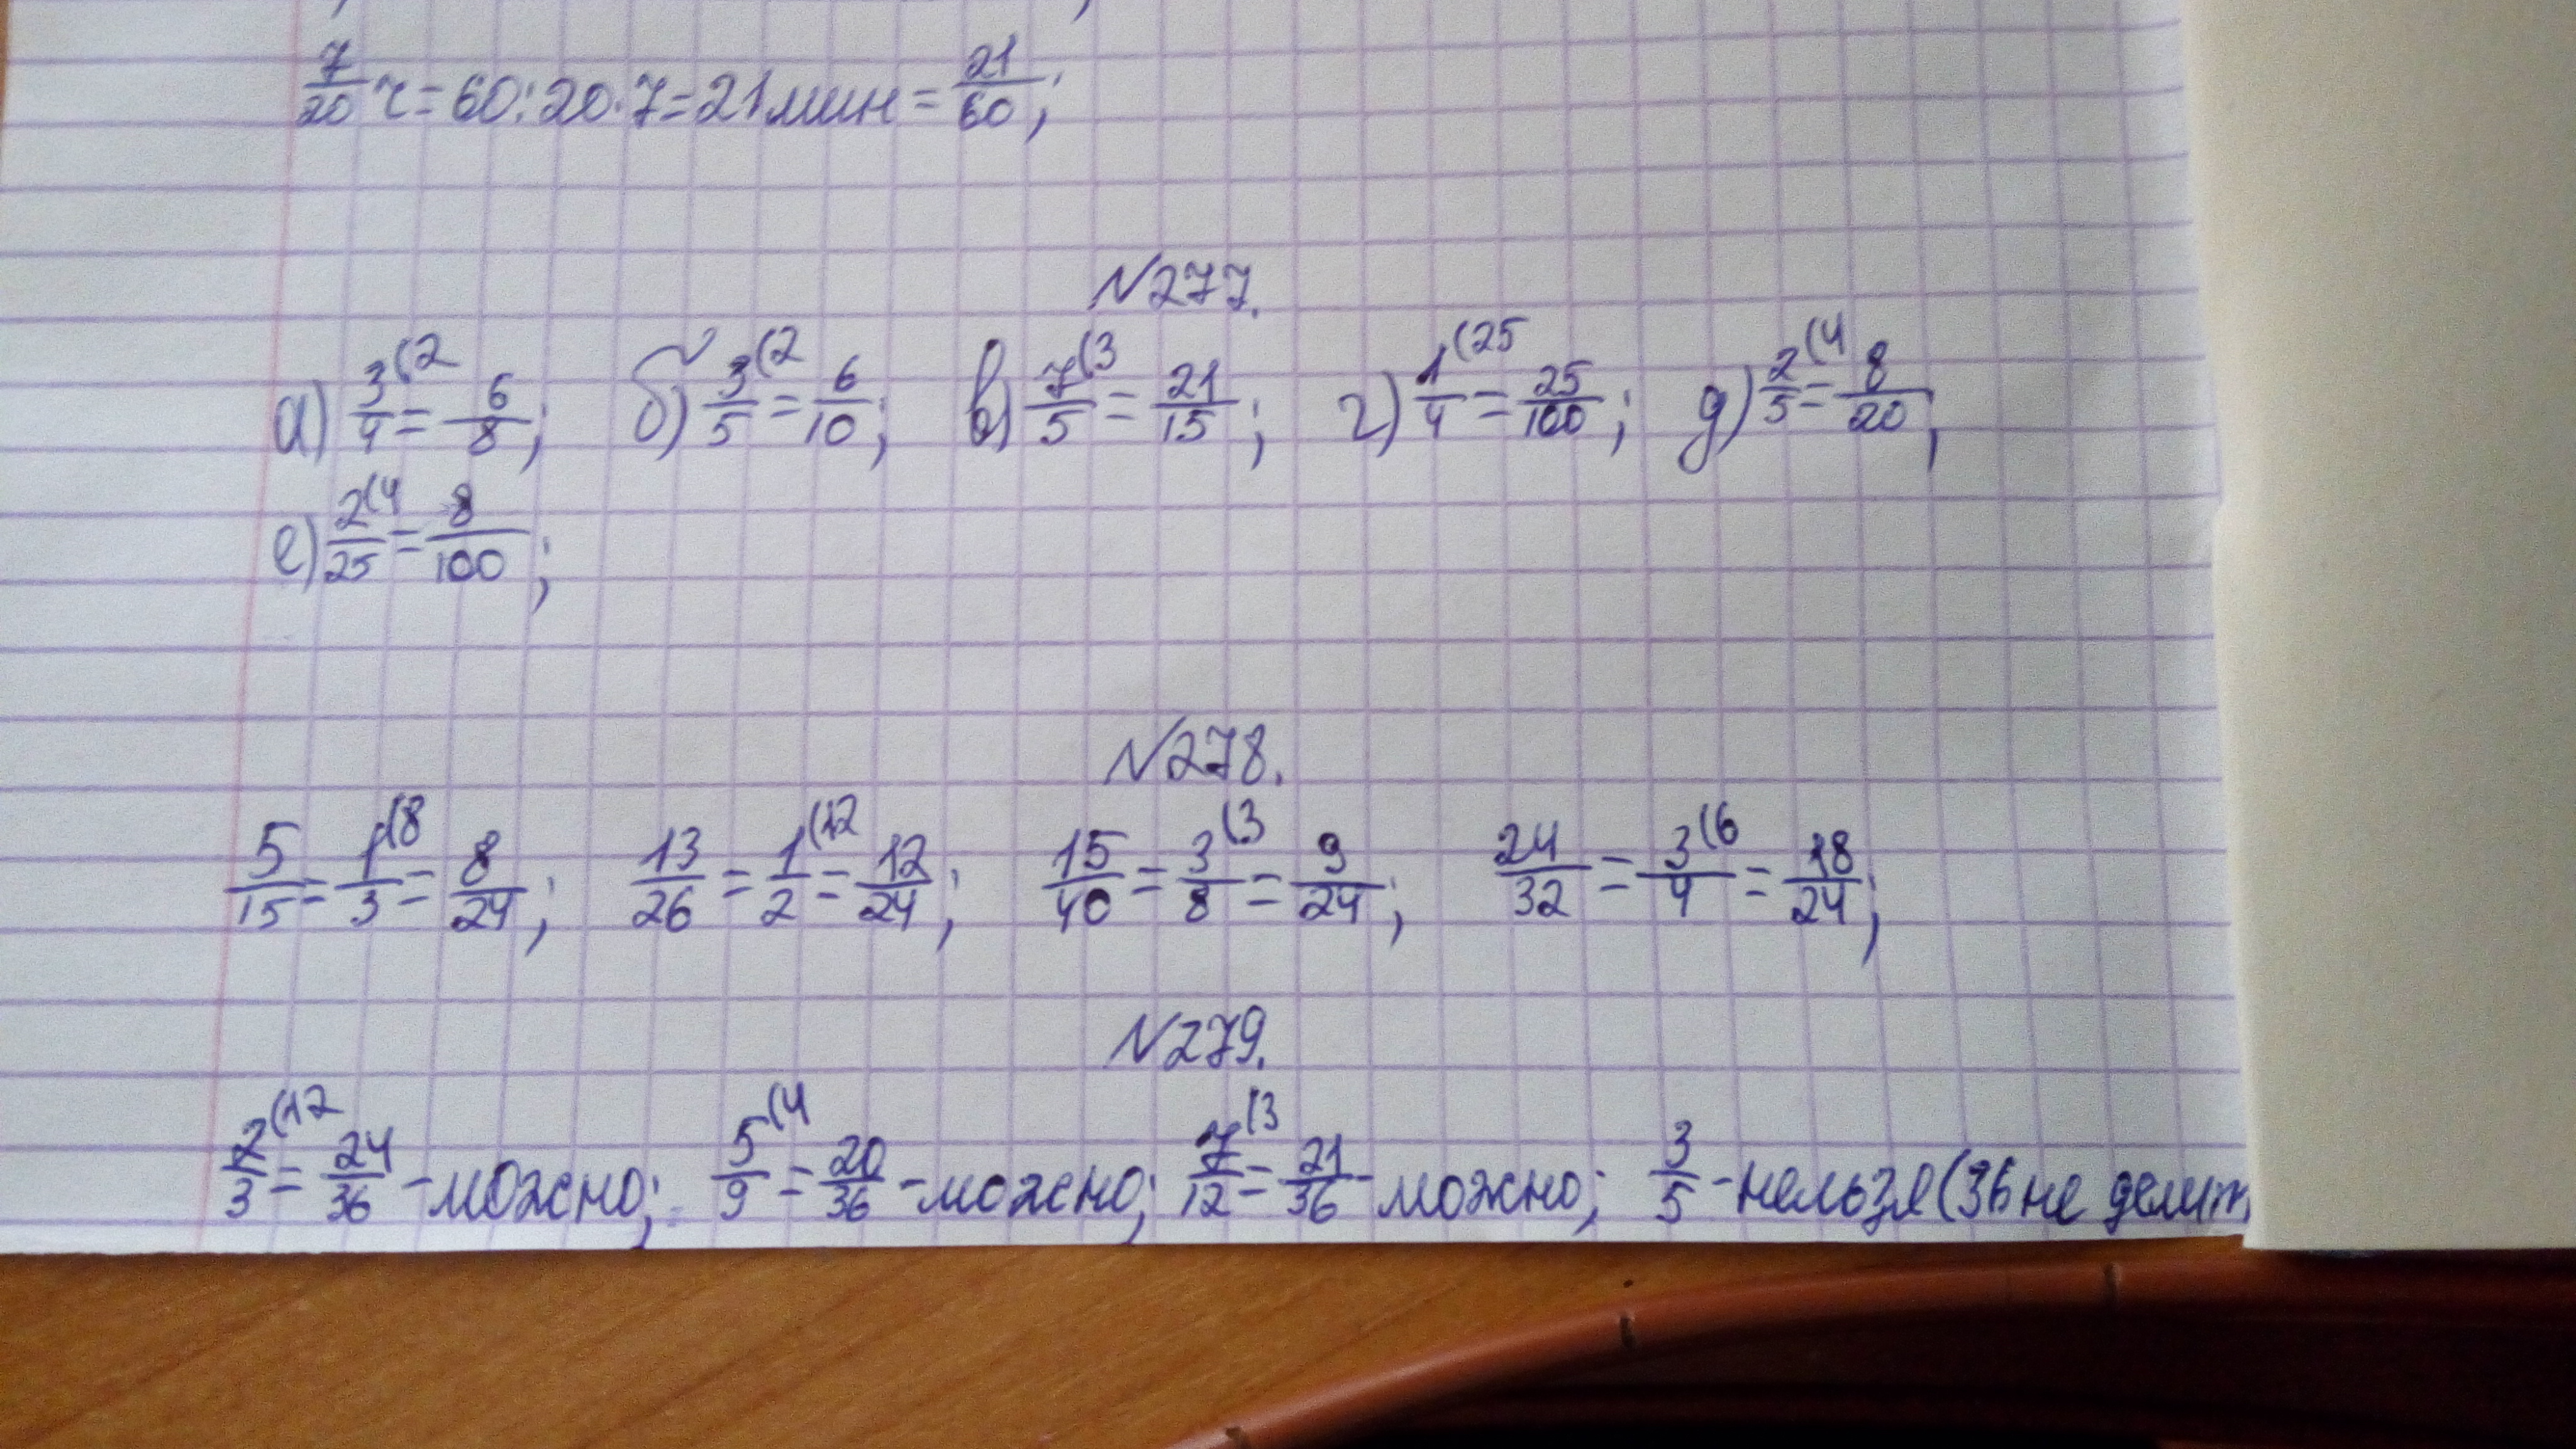 7/20 ч = 60 : 20 · 7 = 21 мин = 21/60;
№277.
а) 3/4 (2 = 6/8; б) 3/5 (2 = 6/10; в) 7/5 (3 = 21/15; г) 1/4 (25 = 25/100; д) 2/5 (4 = 8/20;
е) 2/25 (4 = 8/100;
№278.
5/15 = 1/3 (8 = 8/24; 13/26 = 1/2 (12 = 12/24; 15/40 = 3/8 (3 = 9/24; 24/32 = 3/4 (6 = 18/24;
№279.
2/3 (12 = 24/36 - можно; 5/9 (4 = 20/36 - можно; 7/12 (3 = 21/36 - можно; 3/5 - нельзя (36 не делит